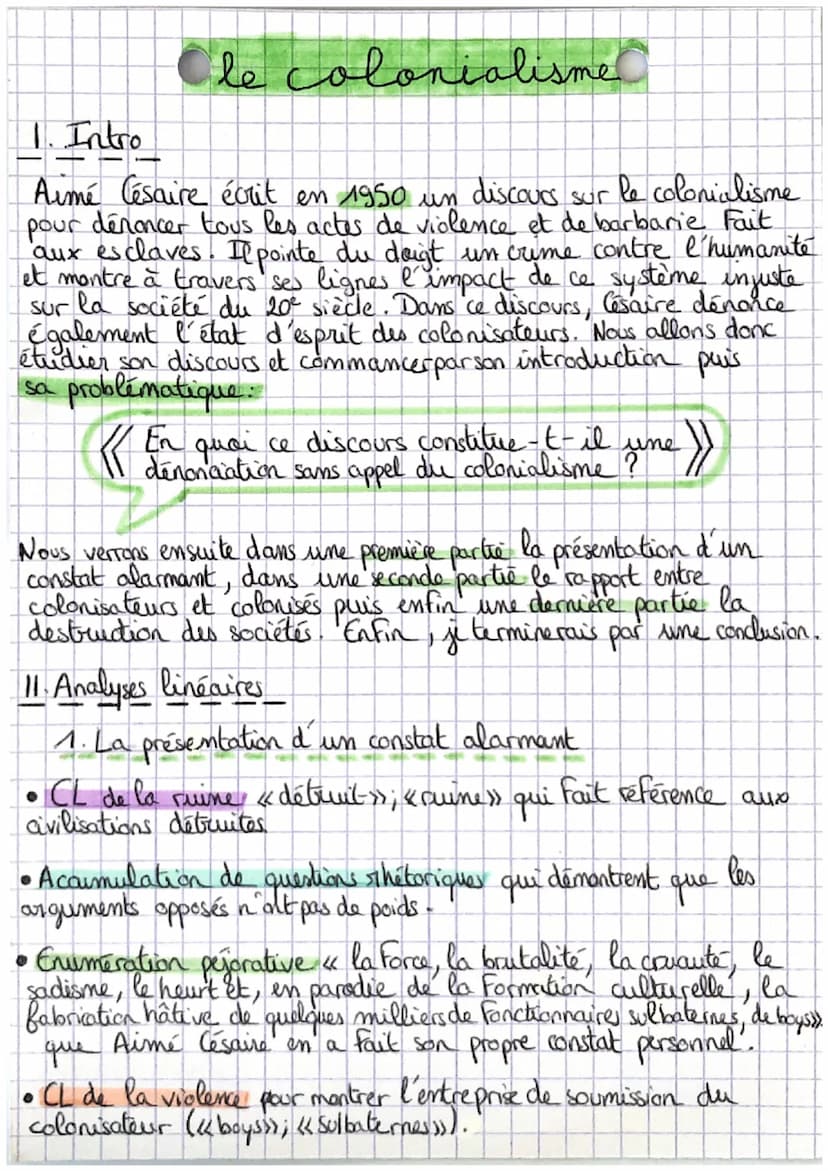 le colonialisme
I. Intro
Aimé Césaire écrit en 1950 un discours sur le colonialisme
pour dénoncer tous les actes de violence et de barbarie Fait
aux esclaves. Il pointe du doigt un crime contre l'humanité
et montre à travers ses lignes l'impact de ce système injuste
sur la société du 20e siècle. Dans ce discours, Césaire dénonce
également l'état d'esprit des colonisateurs. Nous allons donc
étudier son discours et commancer par son introduction puis
sa problématique:
« En quoi ce discours constitue-t-il une »
dénonciation sans appel du colonialisme ?
Nous verrons ensuite dans une première partie la présentation d'un
constat alarmant, dans une seconde partie le rapport entre
colonisateurs et colonisés puis enfin une dernière partie la
destruction des sociétés. Enfin, je terminerais par une conclusion.
II. Analyses linéaires
1. La présentation d'un constat alarmant
• CL de la ruine «détruit»; «ruine» qui fait référence aux
civilisations détruites
• Accumulation de questions rhétoriques qui démontrent que les
arguments opposés n'alt pas de poids.
• Enumération péjorative « la Force, la brutalité, la cruauté, le
sadisme, le heurt et, en parodie de la Formation culturelle, la
fabrication hâtive de quelques milliers de fonctionnaires sulbaternes, de boys»
que Aimé Césaire en a fait son propre constat personnel.
• CL de la violence pour montrer l'entreprise de soumission du
colonisateur («boys»; «Sulbaternes»).